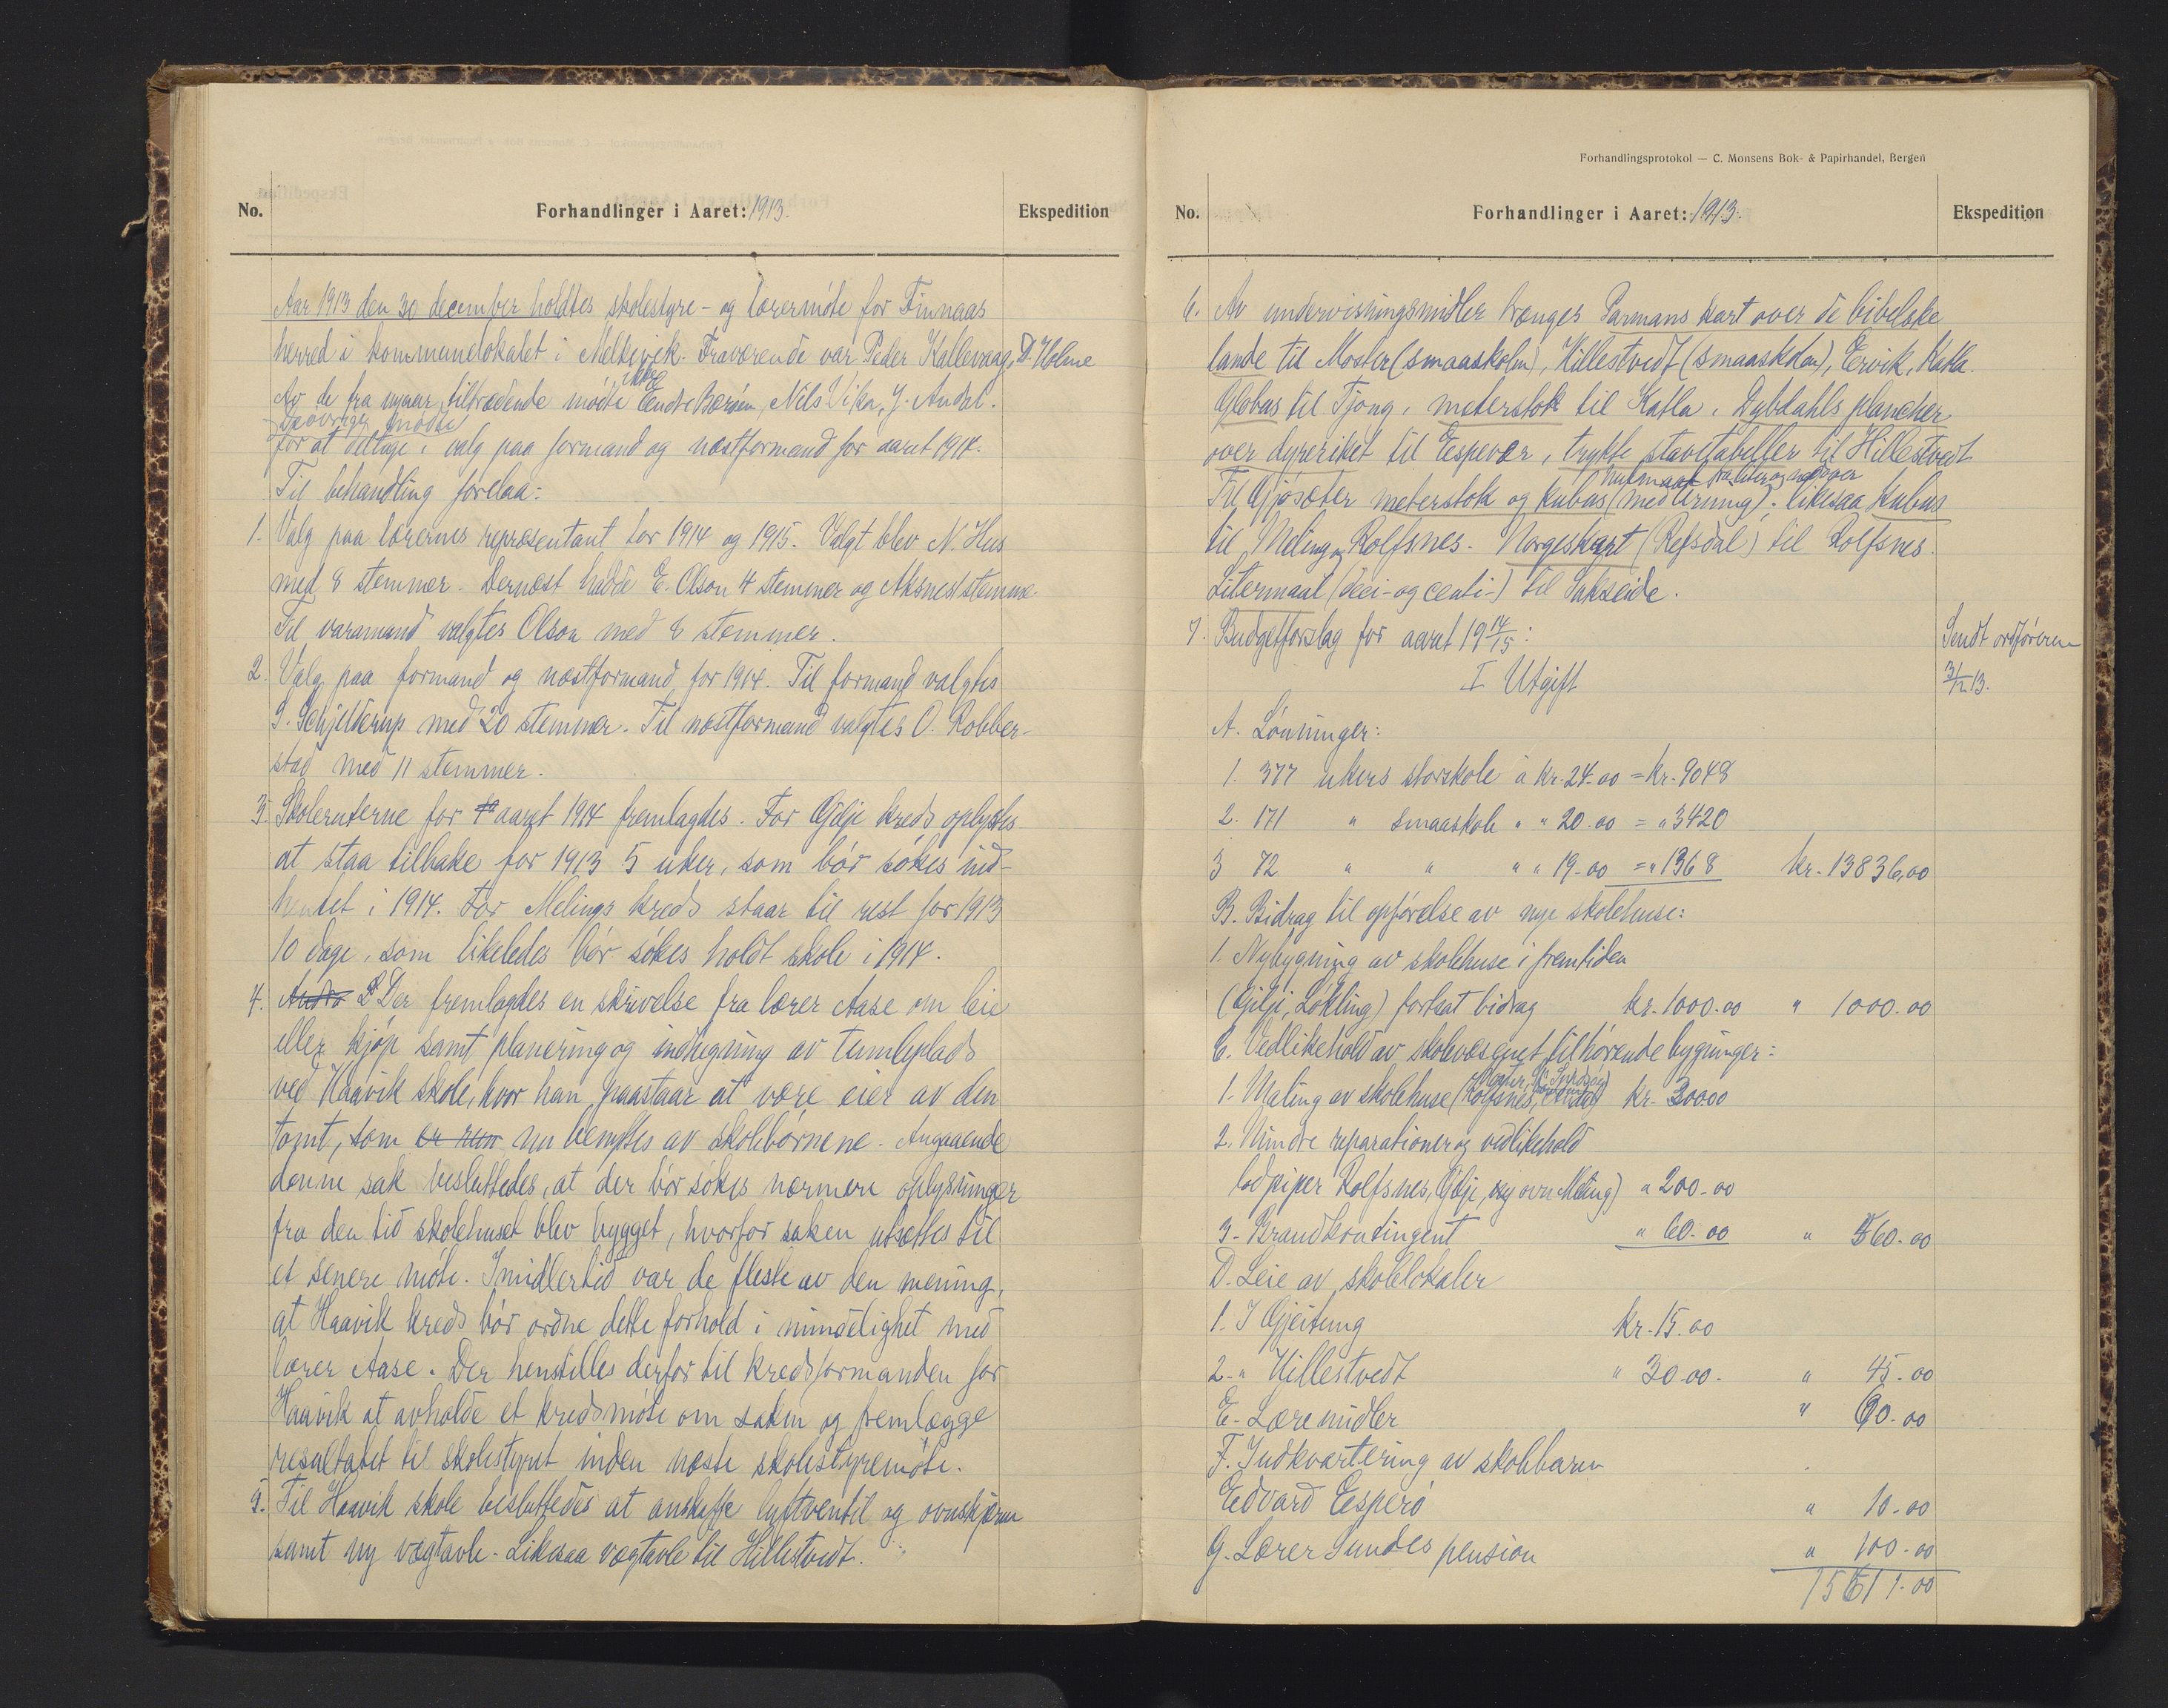 No.
Forhandlinger i Aaret: 1913.
Ekspedition
Aar 1913 den 30 december holdtes skolestyre- og lærermöte for Finnaas
herred i kommunelokalet i Melkevik. Fraværende var Peder Kallevaag, D. Holme
Av de fra nyaar tiltrædende mödte ikke Endre Nils Vika, J. Andal.
De övrige mödte
for at deltage i valg paa formand og næstformand for aaret 1914.
Til behandling forelaa:
1. Valg paa lærernes repræsentant for 1914 og 1915. Valgt blev N. Hus
med 8 stemmer. Dernæst hadde E. Olson 4 stemmer og Aksnes 1 stemme.
Til varamand valgtes Olson med 8 stemmer.
2. Valg paa formand og næstformand for 1914. Til formand valgtes
S. Schjelderup med 20 stemmer. Til næstformand valgtes O. Robber-
stad med 11 stemmer.
3. Skoleruterne for aaret 1914 fremlagdes. For Gilje kreds oplystes
at staa tilbake for 1913 5 uker, som bör sökes ind-
hentet i 1914. For Melings kreds staar til rest for 1913
10 dage, som likeledes bör sökes holdt skole i 1914.
4. Der fremlagdes en skrivelse fra lærer Aase om leie
eller kjöp samt planering og indhegning av tumleplads
ved Haavik skole, hvor han paastaar at være eier av den
tomt, som nu benyttes av skolebörnene. Angaaende
denne sak besluttedes, at der bör sökes nærmere oplysninger
fra den tid skolehuset blev bygget, hvorfor saken utsættes til
et senere möte. Imidlertid var de fleste av den mening,
at Haavik kreds bör ordne dette forhold i mindelighet med
lærer Aase. Der henstilles derfor til kredsformanden for
Haavik at avholde et kredsmöte om saken og fremlægge
resultatet til skolestyret inden næste skolestyremöte.
5. Til Haavik skole besluttedes at anskaffe luftventil og ovnskjærm
samt ny vægtavle. Likesaa vægtavle til Hillestvedt.
Forhandlingsprotokol — C. Monsens Bok- & Papirhandel, Bergen
No.
Forhandlinger i Aaret: 1913.
Ekspedition
6. Av undervisningsmidler trænges Parmans kart over de bibelske
lande til Moster (smaaskolen), Hillestvedt (smaaskolen), Eervik, Katla.
Globus til Tjong, meterstok til Katla, Dybdahls plancher
over dyreriket til Eespevær, trykte stavetabeller til Hillestvedt
Til Gjösæter meterstok og kubus (med terning); likesaa kubus
til Meling og Rolfsnes. Norgeskart (Refsdal) til Rolfsnes.
Litermaal (deci- og centi-) til Sakseide.
7. Budgetforslag for aaret 19 14/15:
Sendt ordföreren
I Utgift
3/12 13.
A. Lönninger:
1. 377 ukers storskole à kr. 24.00 = kr. 9048
2. 171 " smaaskole " " 20.00 = " 3420
3 72 " " " " 19.00 = " 1368 kr. 13836,00
B. Bidrag til opförelse av nye skolehuse:
1. Nybygning av skolehuse i fremtiden
(Gilje, Lökling) fortsat bidrag kr. 1000.00 " 1000.00
C. Vedlikehold av skolevæsenet tilhörende bygninger:
1. Maling av skolehuse (Rolfsnes, kr. 300.00
2. Mindre reparationer og vedlikehold
Rolfsnes, Gilje, ny ovn Meling) " 200.00
3. Brandkontingent " 60.00 " 560.00
D. Leie av skolelokaler
1. I Gjeitung kr. 15.00
2. " Hillestvedt " 30.00. " 45.00
E. Læremidler " 60.00
F. Indkvartering av skolebarn
Eedvard Eesperö " 10.00
G. Lærer Sundes pension " 100.00
15611.00